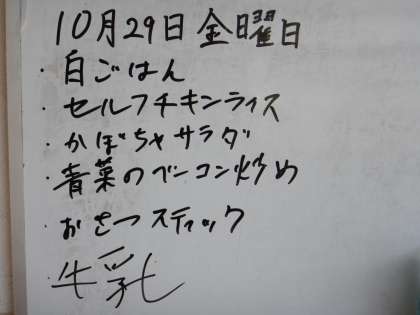 10月29日金曜日
・白ごはん
・セルフチキンライス
・かぼちゃサラダ
・青菜のベーコン炒め
・おさつスティック
・牛乳